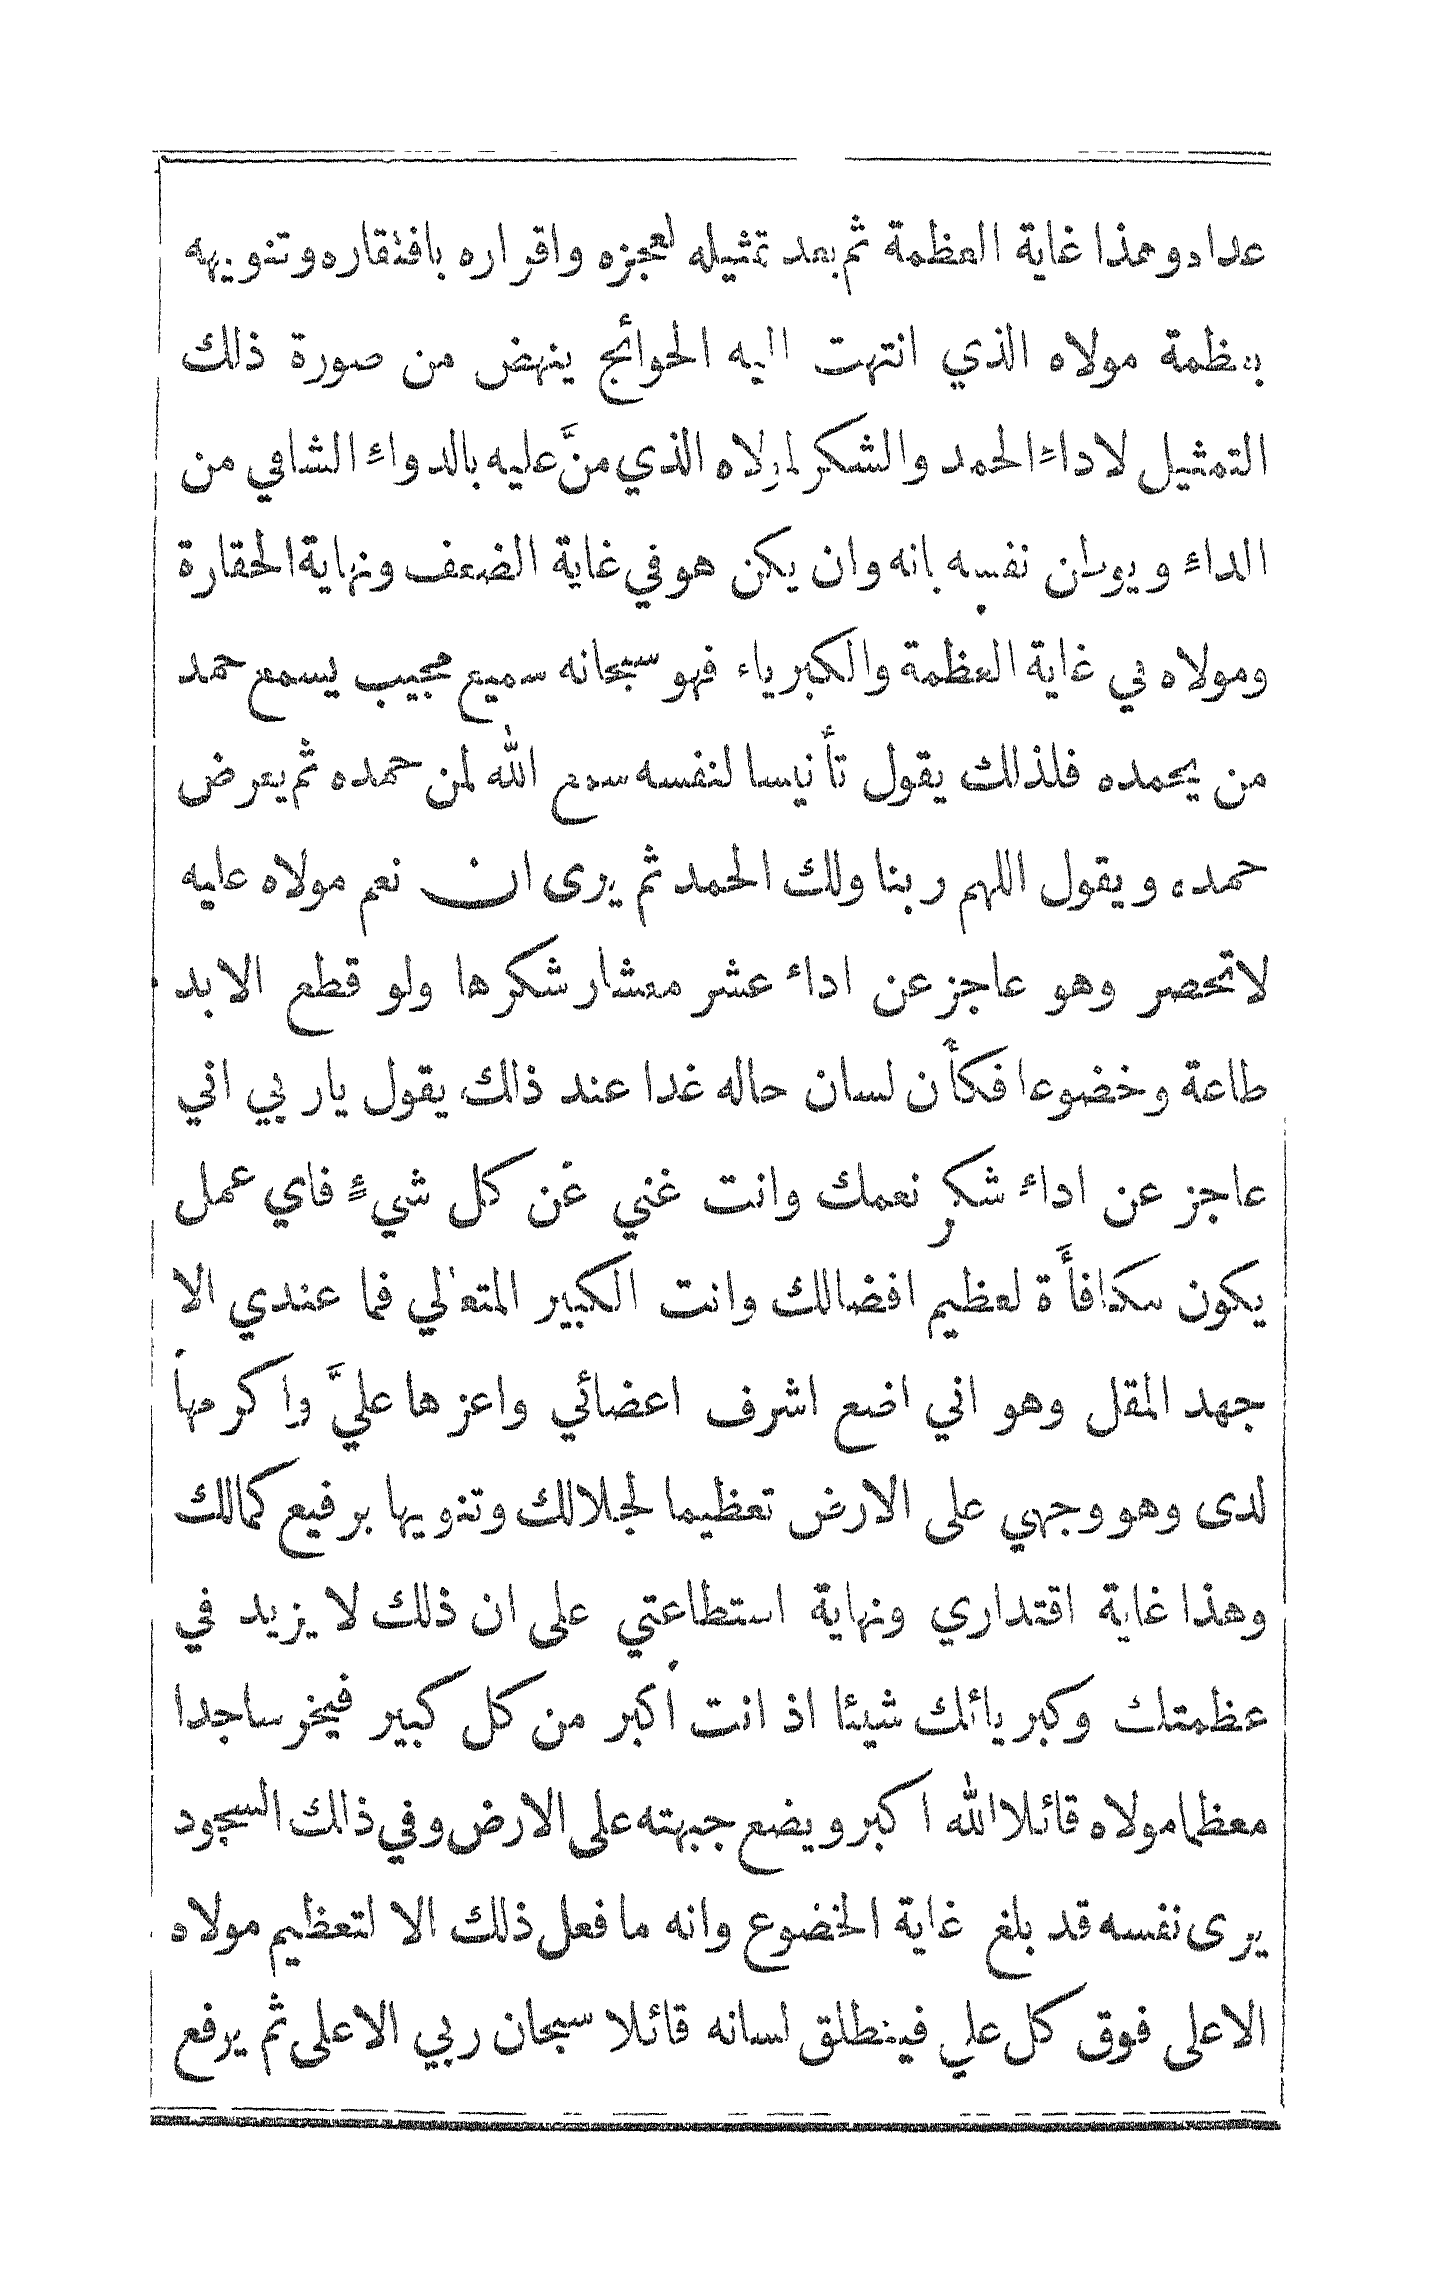 عداه وهذا غاية العظمة ثم بعد تمثيله لعجزه واقراره بافتقاره وتنويهه
بعظمة مولاه الذي انتهت اليه الحوائج ينهض من صورة ذلك
التمثيل لاداء الحمد والشكر لمولاه الذي منَّ عليه بالدواء الشافي من
الداء ويوطن نفسه بانه وان يكن هو في غاية الضعف ونهاية الحقارة
ومولاه في غاية العظمة والكبرياء فهو سبحانه سميع مجيب يسمع حمد
من يحمده فلذلك يقول تأنيسا لنفسه سمع الله لمن حمده ثم يعرض
حمده ويقول اللهم ربنا ولك الحمد ثم يرى ان نعم مولاه عليه
لا تحصر وهو عاجز عن اداء عشر معشار شكرها ولو قطع الابد
طاعة وخضوعا فكأن لسان حاله غدا عند ذلك يقول يا ربي اني
عاجز عن اداء شكر نعمك وانت غني عن كل شيءٍ فاي عمل
يكون مكافأَة لعظيم افضالك وانت الكبير المتعالي فما عندي الا
جهد المقل وهو اني اضع اشرف اعضائي واعزها عليَّ واكرمها
لدى وهو وجهي على الارض تعظيما لجلالك وتنويها برفيع كمالك
وهذا غاية اقتداري ونهاية استطاعتي على ان ذلك لا يزيد في
عظمتك وكبريائك شيئا اذ انت اكبر من كل كبير فيخر ساجدا
معظما مولاه قائلا الله اكبر ويضع جبهته على الارض وفي ذالك السجود
يرى نفسه قد بلغ غاية الخضوع وانه ما فعل ذلك الا لتعظيم مولاه
الاعلى فوق كل علي فينطلق لسانه قائلا سبحان ربي الاعلى ثم يرفع